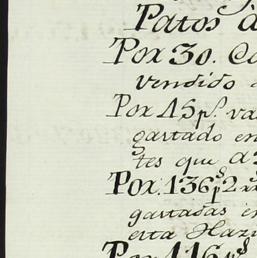 Patos á
Por 30. Ca
vendido
Por 45 p.s va
gastado en
tes que a
Por 136 p.s 2
gastadas en
esta Hazi
Por 116 p.s